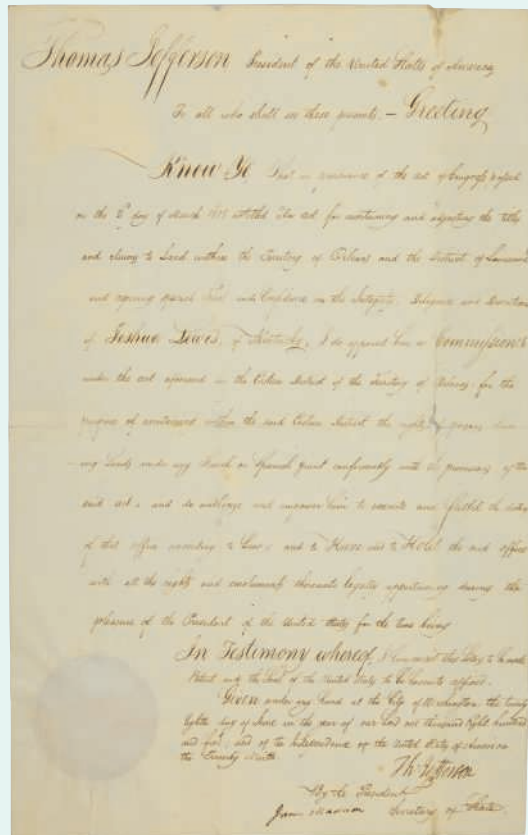 Thomas Jefferson, President of the United States of America,
To all who shall see these presents, – Greeting
Know Ye, That in pursuance of the act of Congress passed
on the 2d day of March 1805 entitled "An act for ascertaining and adjusting the titles
and claims to Land within the Territory of Orleans and the District of Louisiana"
and reposing special Trust and Confidence in the Integrity, Diligence and
of Joshua Lewis, of Kentucky, I do appoint him a Commissioner
under the act aforesaid in the Eastern District of the Territory of Orleans for the
purpose of within the said Eastern District the rights of persons
Lands under any French or Spanish grant conformably with the provisions of the
said act; and do authorize and empower him to execute and fulfil the duties
of that office according to Law; and to Have and to Hold the said office
with all the rights and emoluments thereunto legally appertaining during the
pleasure of the President of the United States for the time being
In Testimony whereof, I have caused these Letters to be made
Patent and the Seal of the United States to be hereunto affixed.
Given under my hand at the City of Washington the twenty
eighth day of June in the year of our Lord one thousand eight hundred
and five; and of the Independence of the United States of America
the Twenty Ninth.
Th: Jefferson
By the President
James Madison Secretary of State.